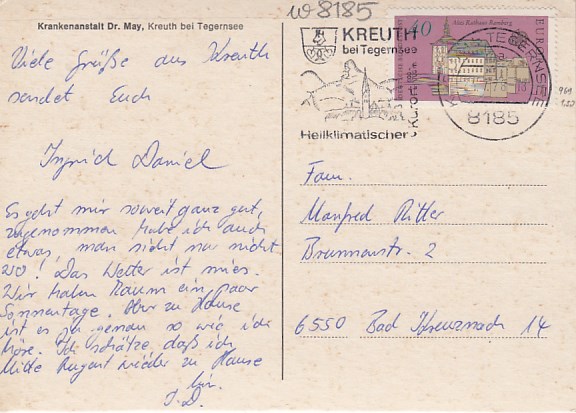 Krankenanstalt Dr. May, Kreuth bei Tegernsee
Viele Grüße aus Kreuth
sendet Euch
Ingrid Daniel
Es geht mir soweit ganz gut,
zugenommen habe ich auch
etwas, man sieht nur nicht
wo! Das Wetter ist mies.
Wir haben kaum ein paar
Sonnentage. Aber zu Hause
ist es ja genau so wie ich
höre. Ich schätze daß ich
Mitte August wieder zu Hause
bin.
I.D.
W 8185
KREUTH
bei Tegernsee
Heilklimatischer
Kurort
40
Altes Rathaus Bamberg
EUROPA
TEGERNSEE
8185
Fam.
Manfred Ritter
Brunnenstr. 2
6550 Bad Kreuznach 14